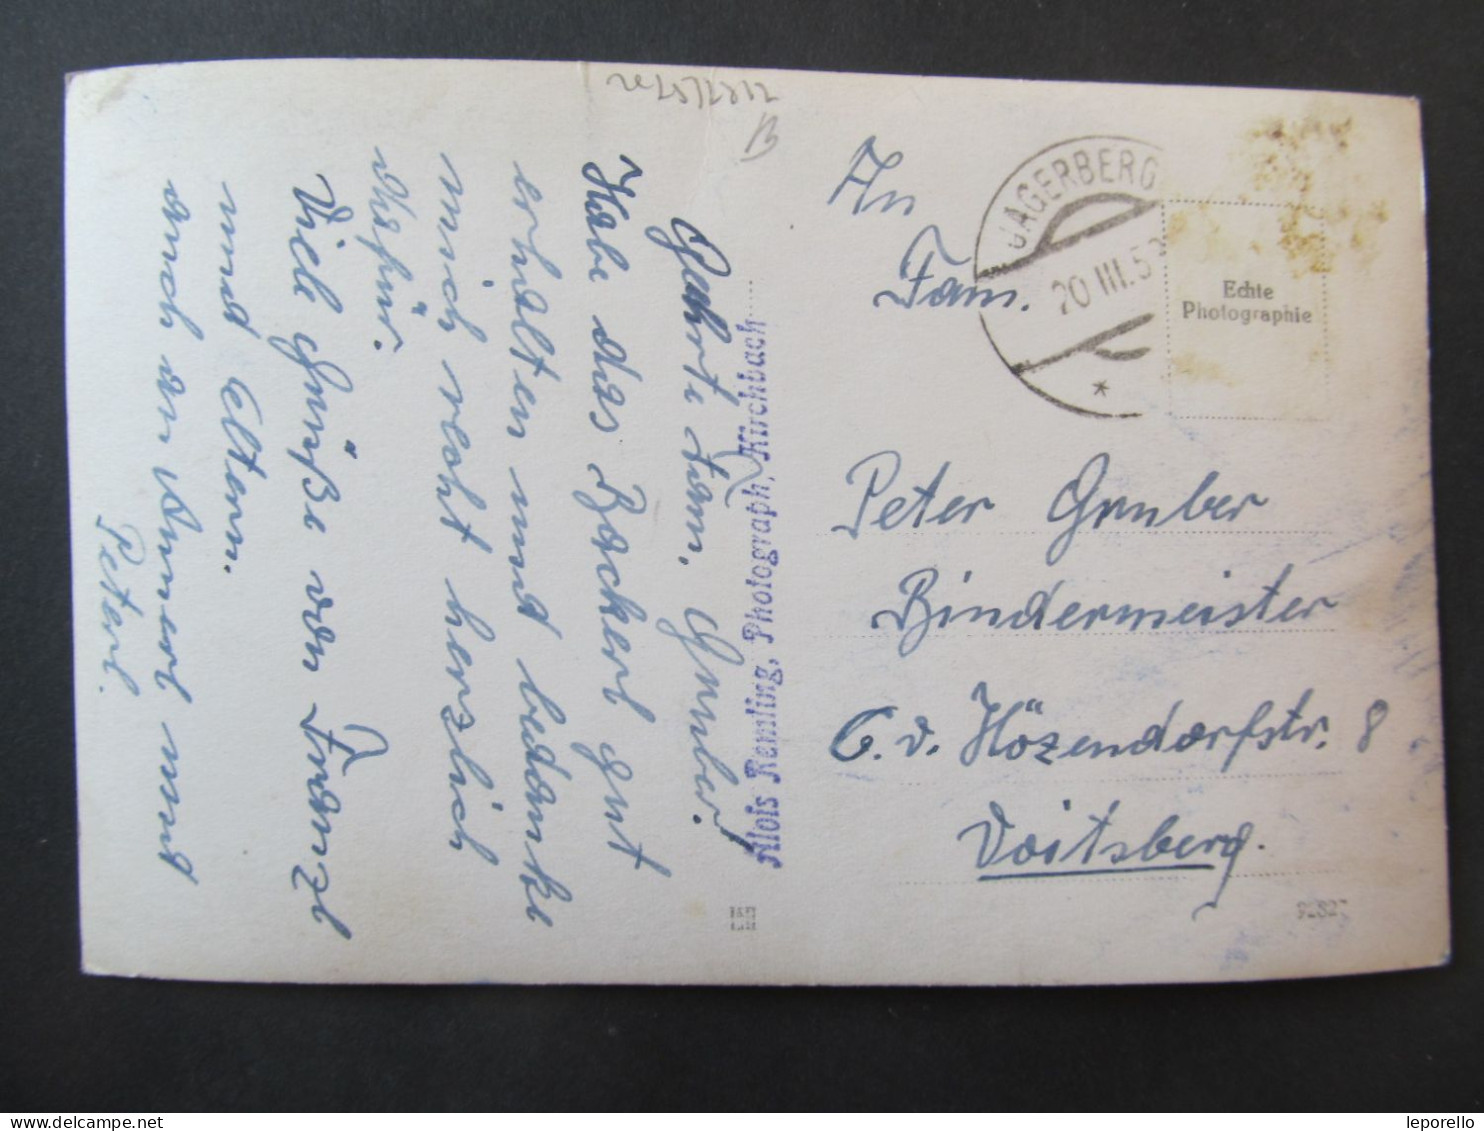 Geehrte Fam. Gruber!
Habe das Packerl gut
erhalten und bedanke
mich recht herzlich
dafür.
Viele Grüße von Franzl
und Eltern.
auch an und
Peterl.
Alois Remling, Photograph, Kirchbach
JAGERBERG
20 III. 5
*
Echte
Photographie
An
Fam.
Peter Gruber
Bindermeister
C. v. Hözendorfstr. 8
Voitsberg.
92827
leporello